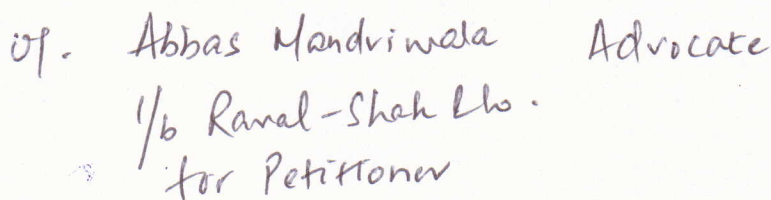 Abbas Mandriwala Advocate
i/b Raval-Shah & Co.
for Petitioner